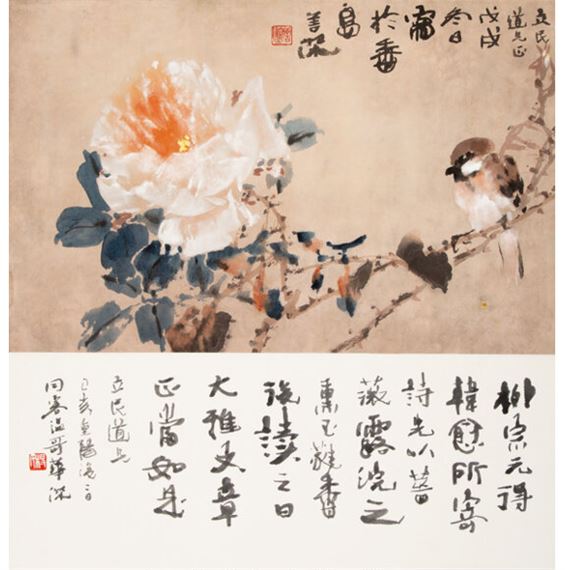 立民
道兄正
戊戌
冬日
寫
於香
島
善深
柳宗元得
韓愈所寄
詩先以薔
薇露浣之
熏玉蕤香
後讀之曰
大雅文章
正當如是
立民道兄
己亥重陽後日
同客溫哥華深